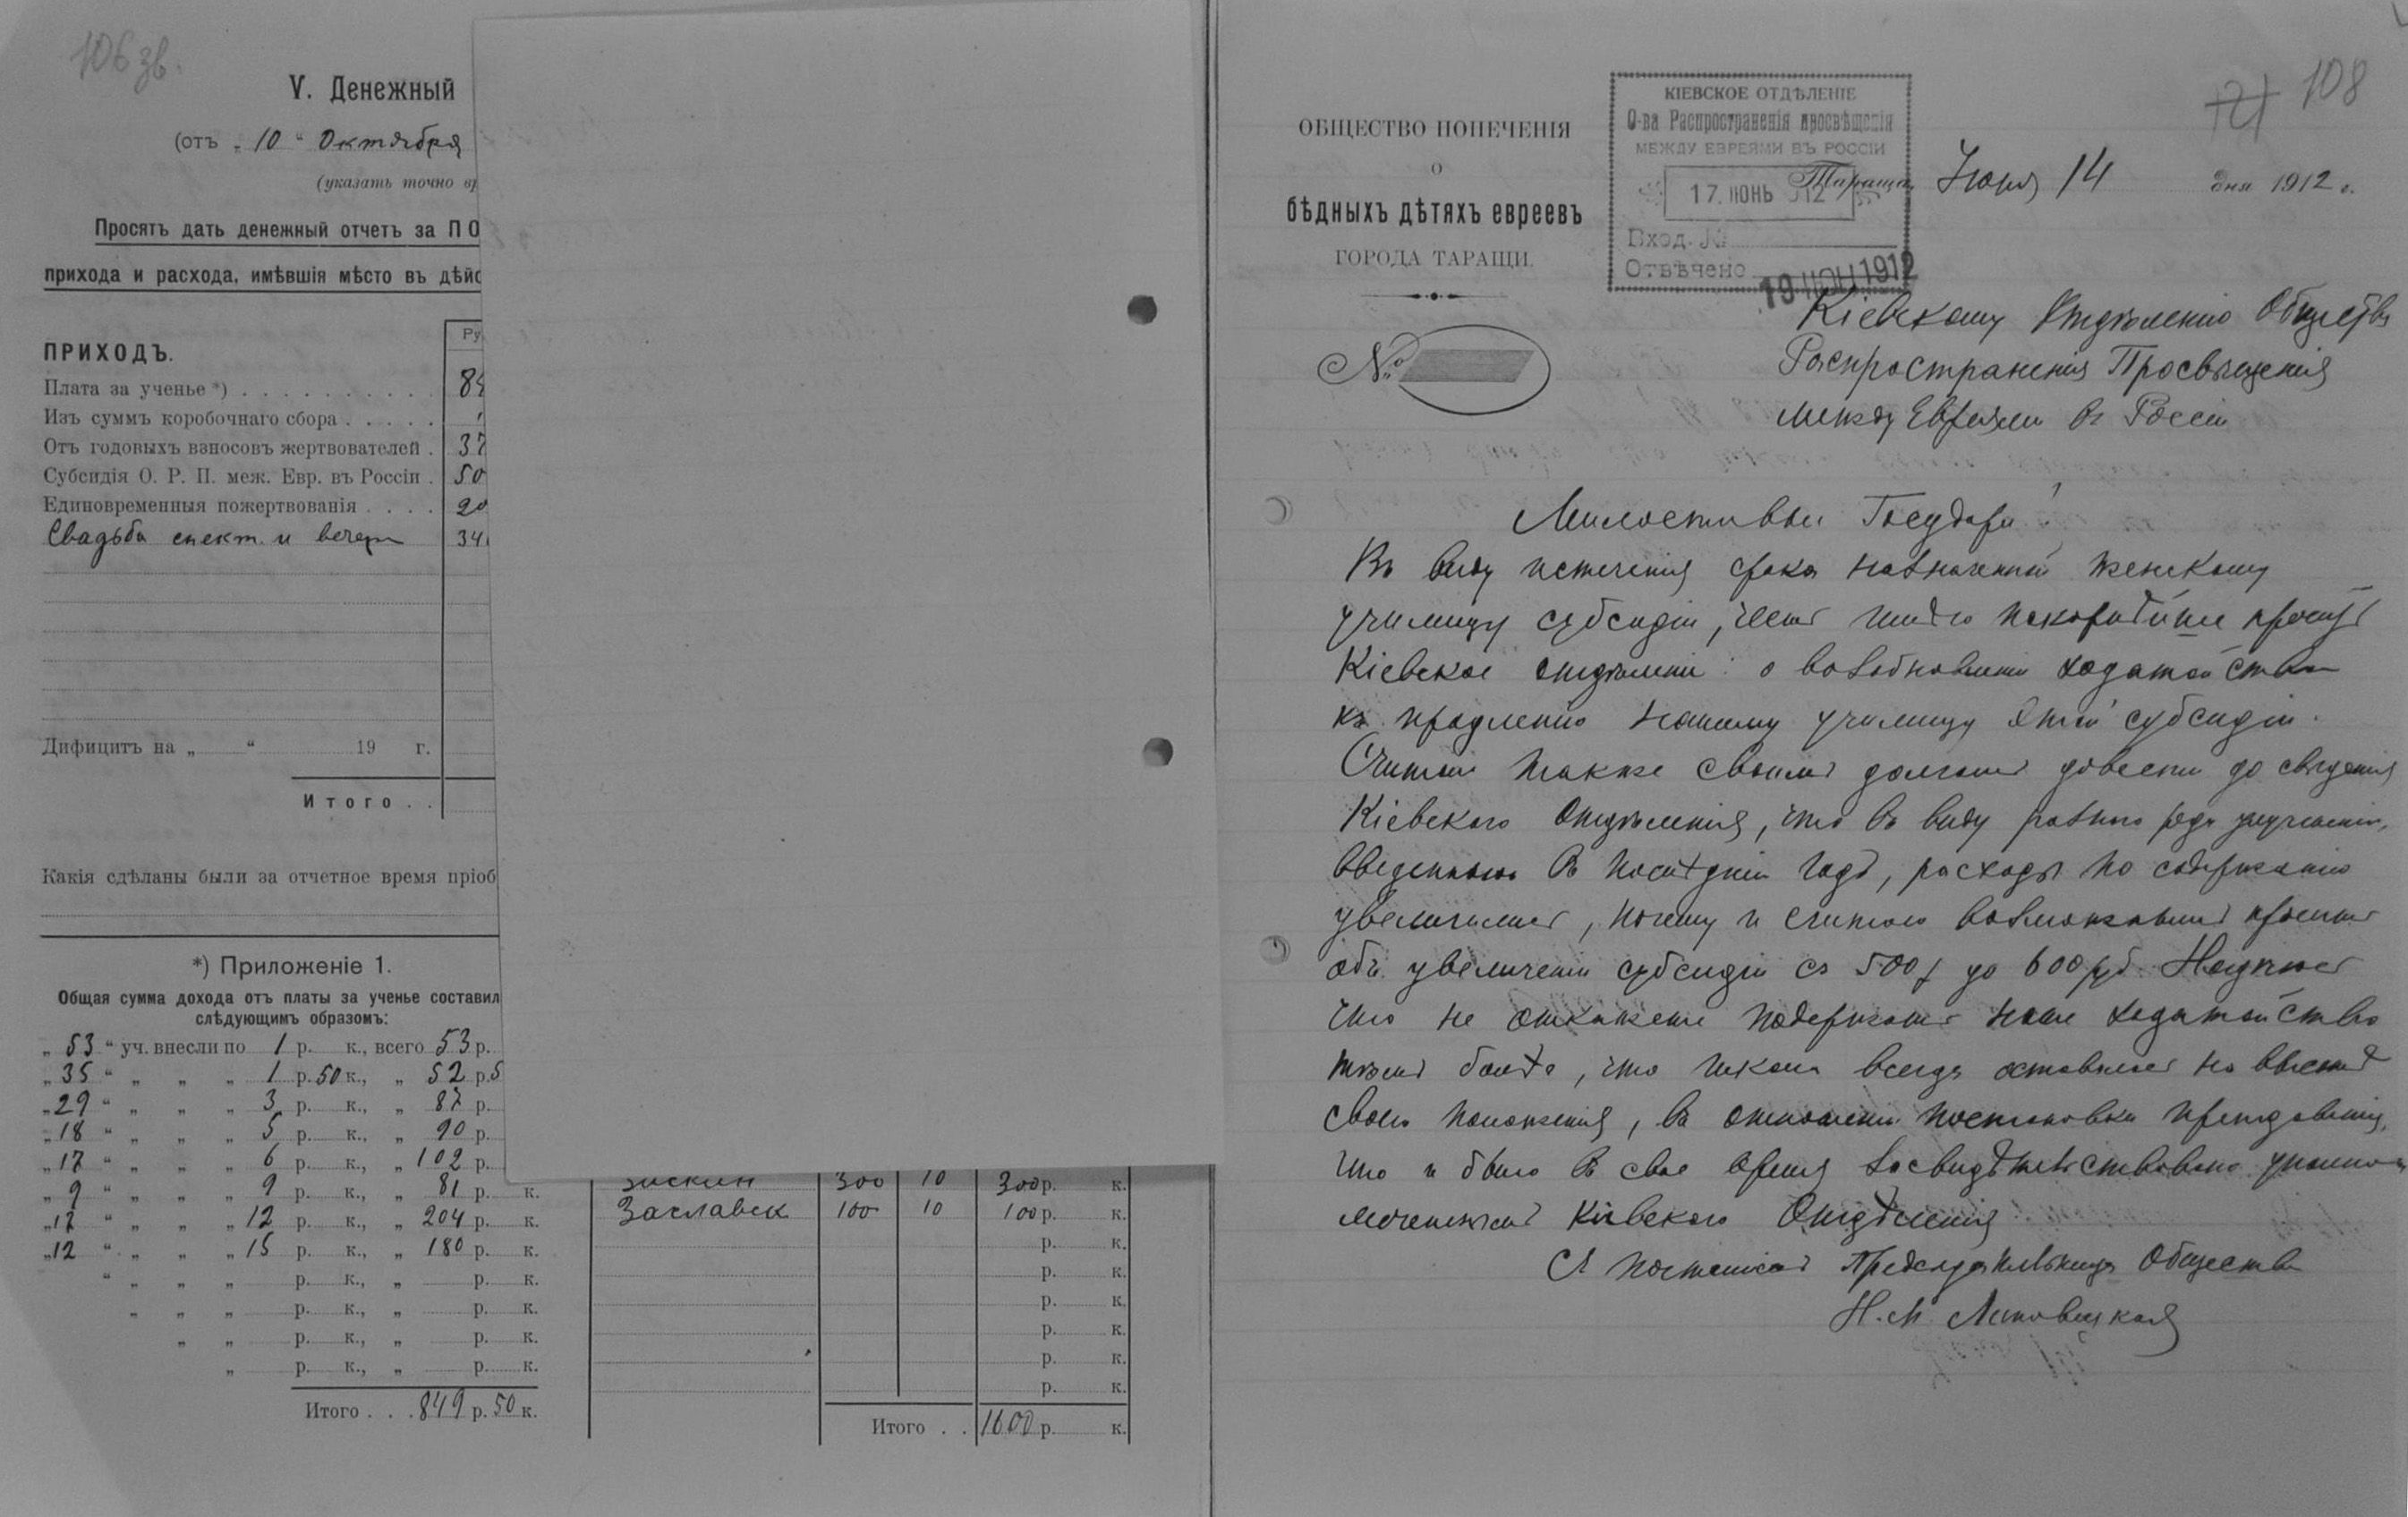 106 зв.
V. Денежный
(отъ „10“ Октября
(указать точно вр
Просятъ дать денежный отчетъ за ПО
прихода и расхода, имѣвшія мѣсто въ дѣйс
ПРИХОДЪ.
Ру
Плата за ученье *) . . . . . . . . . . 84
Изъ суммъ коробочнаго сбора . . . . .
Отъ годовыхъ взносовъ жертвователей . 37
Субсидія О. Р. П. меж. Евр. въ Россіи . 50
Единовременныя пожертвованія . . . . 20
Свадьба спект. и вечера 34
Дифицитъ на „ “ 19 г.
Итого . .
Какія сдѣланы были за отчетное время пріоб
*) Приложеніе 1.
Общая сумма дохода отъ платы за ученье составил
слѣдующимъ образомъ:
„53“ уч. внесли по 1 р. к., всего 53 р.
„35“ „ „ „ 1 р. 50 к., „ 52 р. 5
„29“ „ „ „ 3 р. к., „ 87 р.
„18“ „ „ „ 5 р. к., „ 90 р.
„17“ „ „ „ 6 р. к., „ 102 р.
„9“ „ „ „ 9 р. к., „ 81 р. к.
„17“ „ „ „ 12 р. к., „ 204 р. к.
„12“ „ „ „ 15 р. к., „ 180 р. к.
“ „ „ „ р. к., „ р. к.
„ „ „ р. к., „ р. к.
„ „ р. к., „ р. к.
„ р. к., „ р. к.
Итого . . . 849 р. 50 к.
300 10 300 р. к.
Заславск 100 10 100 р. к.
р. к.
р. к.
р. к.
р. к.
р. к.
р. к.
Итого . . 1600 р. к.
121 108
ОБЩЕСТВО ПОПЕЧЕНІЯ
О
БѢДНЫХЪ ДѢТЯХЪ ЕВРЕЕВЪ
ГОРОДА ТАРАЩИ.
№
КІЕВСКОЕ ОТДѢЛЕНІЕ
О-ва Распространенія просвѣщенія
МЕЖДУ ЕВРЕЯМИ ВЪ РОССІИ
17. ІЮНЬ 912
Вход. №
Отвѣчено 19 ІЮН 1912
Тараща, Іюня 14 дня 1912 г.
Кіевскому Отдѣленію Общества
Распространенія Просвѣщенія
между Евреями въ Россіи
Милостивые Государи!
Въ виду истеченія срока назначенной женскому
училищу субсидіи, честь имѣю покорнѣйше просить
Кіевское отдѣленіе о возобновленіи ходатайства
къ продленію нашему училищу этой субсидіи.
Считаю также своимъ долгомъ довести до свѣденія
Кіевского Отдѣленія, что въ виду разного рода улучшеній,
введенныхъ въ послѣдній годъ, расходы по содержанію
увеличились, почему и считаю возможнымъ просить
объ увеличеніи субсидіи съ 500 р до 600 руб. Надѣюсь
что не откажете подержать наше ходатайство
тѣмъ болѣе, что школа всегда оставалась на высотѣ
своего положенія, въ отношеніи постановки преподаванія,
что и было въ свое время засвидѣтельствовано уполно-
моченнымъ Кіевского Отдѣленія
Съ почтеніемъ Предсѣдательница Общества
Н. М. Литовецкая